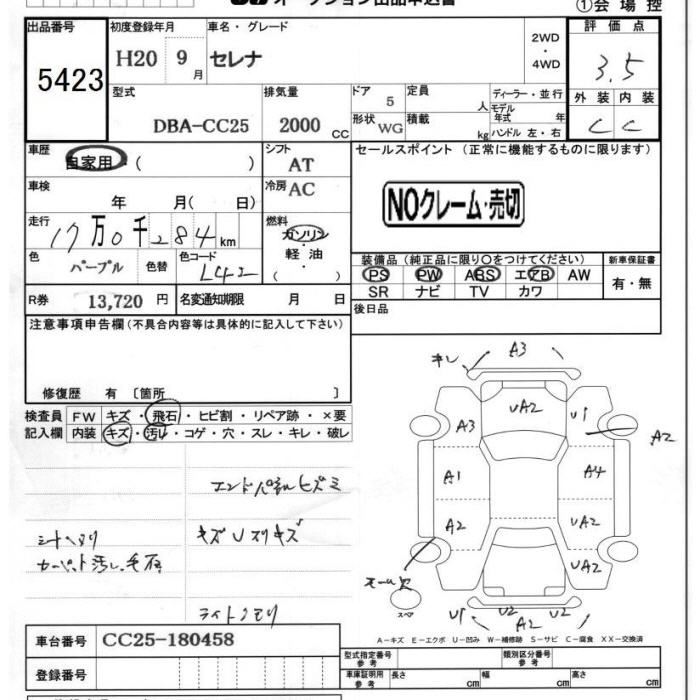 オークション出品申込書
①会場控
出品番号 初度登録年月 車名・グレード 評価点
5423 H20 9月 セレナ 2WD・4WD 3.5
型式 排気量 ドア 定員 ディーラー・並行 外装 内装
DBA-CC25 2000 CC 5 人 モデル年式 年 C C
形状 WG 積載 kg ハンドル 左・右
車歴 自家用・( ) シフト AT セールスポイント (正常に機能するものに限ります)
車検 年 月( 日) 冷房 AC
NOクレーム・売切
走行 17万0千284km 燃料 ガソリン・軽油 ( )
色 パープル 色替 色コード L42
装備品 (純正品に限り○をつけてください) 新車保証書
PS PW ABS エアB AW 有・無
SR ナビ TV カワ
R券 13,720円 名変通知期限 月 日
後日品
注意事項申告欄(不具合内容等は具体的に記入して下さい)
修復歴 有 〔箇所 〕
検査員 FW キズ・飛石・ヒビ割・リペア跡・×要
記入欄 内装 キズ・汚れ・コゲ・穴・スレ・キレ・破レ
エンドパネルヒズミ
シートヘタリ キズUスリキズ
カーペット汚し
ライトクモリ
キレ A3
A3 UA2 U1 A2
A1 A4
A2 UA2
UA2
スペア
U1 U2 A2 U2
A-キズ E-エクボ U-凹み W-補修跡 S-サビ C-腐食 XX-交換済
車台番号 CC25-180458
登録番号
型式指定番号 参考 類別区分番号 参考
車庫証明用 参考 長さ cm 幅 cm 高さ cm